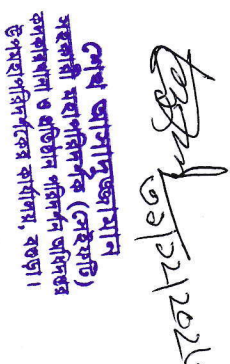 ০৯/১২/২০২৫
শেখ আসাদুজ্জামান
সহকারী মহাপরিদর্শক (সেইফটি)
কলকারখানা ও প্রতিষ্ঠান পরিদর্শন অধিদপ্তর
উপমহাপরিদর্শকের কার্যালয়, বগুড়া।